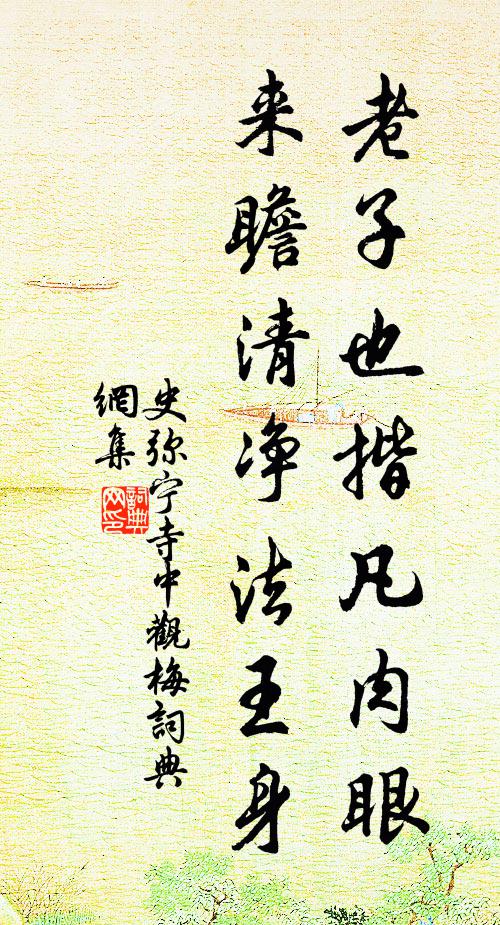 老子也揩凡肉眼
来瞻清净法王身
史弥宁寺中觀梅詞典
網集
詞典
网印